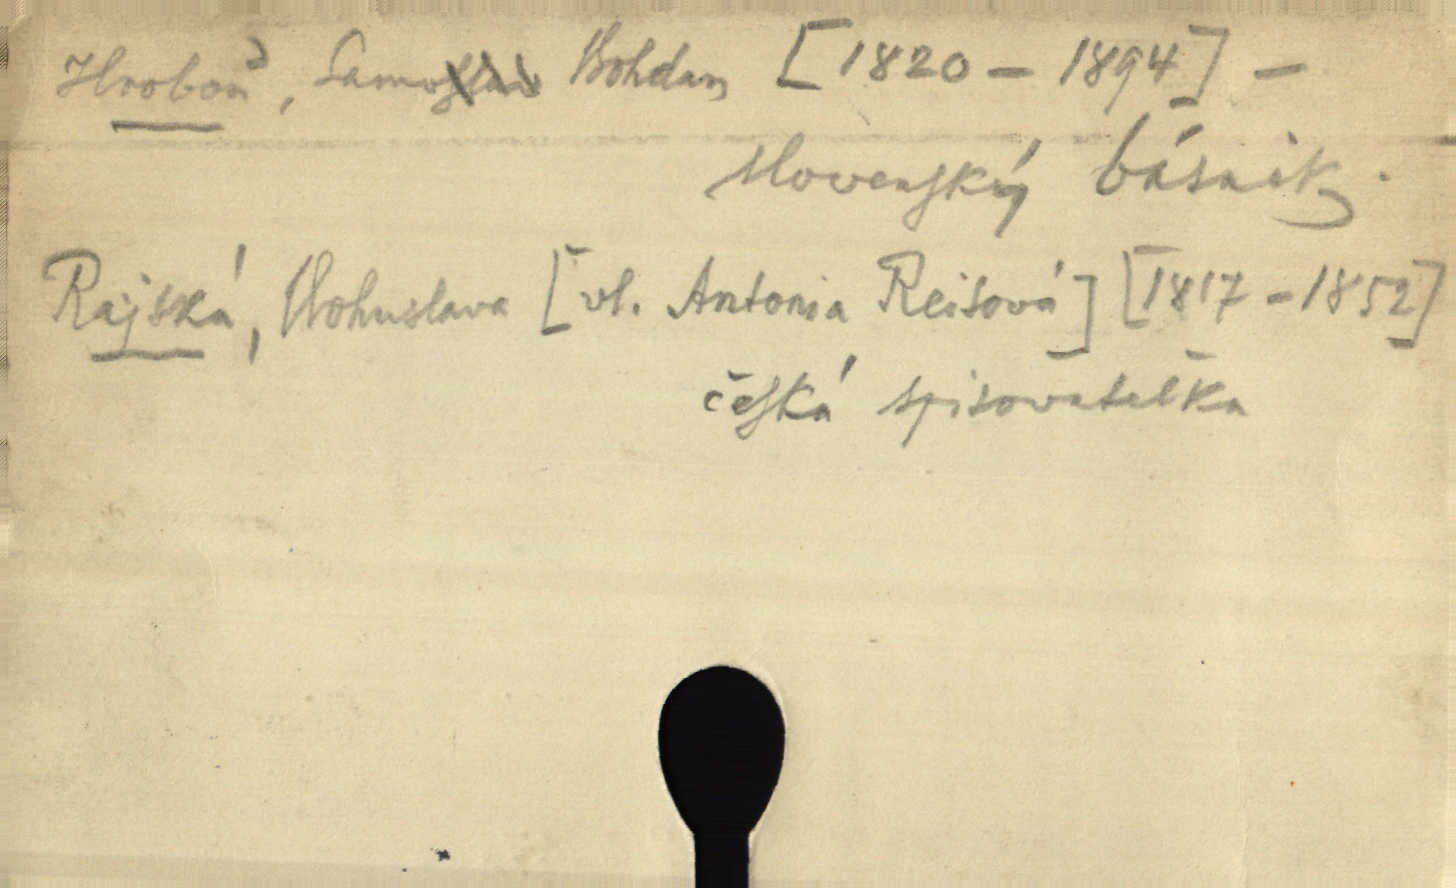 Hroboň, Samoslav Bohdan [1820 – 1894] –
slovenský básnik.
Rajská, Bohuslava [vl. Antonia Reisová] [1817 – 1852]
česká spisovatelka